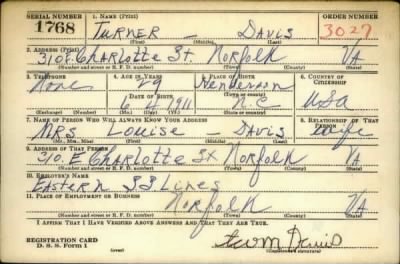 SERIAL NUMBER 1. NAME (Print) ORDER NUMBER
1768 TURNER — DAVIS 3027
(First) (Middle) (Last)
2. ADDRESS (Print)
310 E Charlotte St. Norfolk VA
(Number and street or R. F. D. number) (Town) (County) (State)
3. TELEPHONE 4. AGE IN YEARS 5. PLACE OF BIRTH 6. COUNTRY OF CITIZENSHIP
None 29 Henderson
DATE OF BIRTH
6 4 1911 N.C. USA
(Exchange) (Number) (Mo.) (Day) (Yr.) (Town or county) (State or country)
7. NAME OF PERSON WHO WILL ALWAYS KNOW YOUR ADDRESS 8. RELATIONSHIP OF THAT PERSON
MRS Louise — Davis Wife
(Mr., Mrs., Miss) (First) (Middle) (Last)
9. ADDRESS OF THAT PERSON
310. E Charlotte St Norfolk VA
(Number and street or R. F. D. number) (Town) (County) (State)
10. EMPLOYER'S NAME
Eastern S S Lines
11. PLACE OF EMPLOYMENT OR BUSINESS
Norfolk VA
(Number and street or R. F. D. number) (Town) (County) (State)
I AFFIRM THAT I HAVE VERIFIED ABOVE ANSWERS AND THAT THEY ARE TRUE.
REGISTRATION CARD
D. S. S. Form 1 Davis